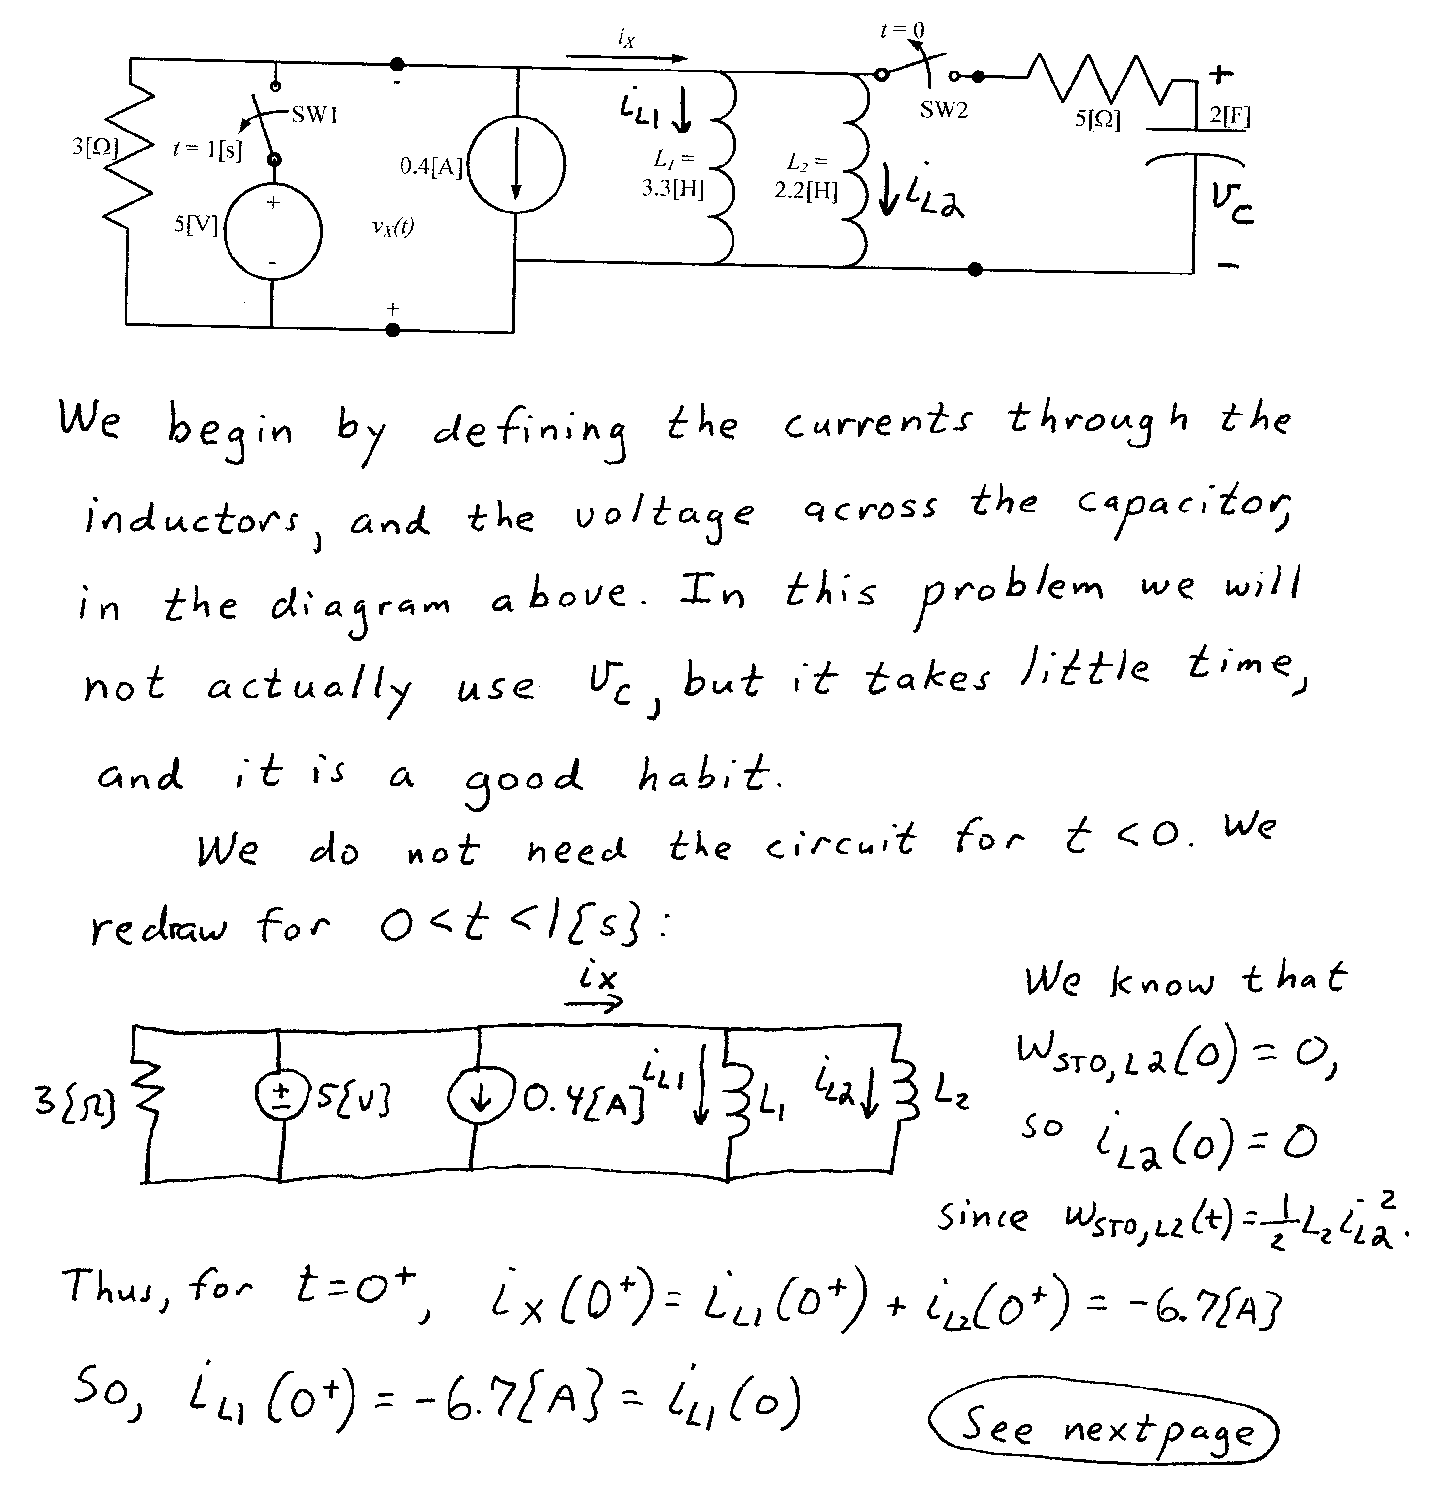 t = 0
iX
+
iL1
SW1
SW2
5[Ω]
2[F]
-
3[Ω]
t = 1[s]
0.4[A]
L1 =
3.3[H]
L2 =
2.2[H]
iL2
vC
+
5[V]
vX(t)
-
-
+
We begin by defining the currents through the
inductors, and the voltage across the capacitor,
in the diagram above. In this problem we will
not actually use vC, but it takes little time,
and it is a good habit.
We do not need the circuit for t < 0. We
redraw for 0 < t < 1[s]:
iX
We know that
wSTO,L2(0) = 0,
so iL2(0) = 0
since wSTO,L2(t) = 1/2 L2 iL2².
3[Ω]
+
-
5[V]
0.4[A]
iL1
L1
iL2
L2
Thus, for t = 0⁺, iX(0⁺) = iL1(0⁺) + iL2(0⁺) = -6.7[A]
So, iL1(0⁺) = -6.7[A] = iL1(0)
See next page